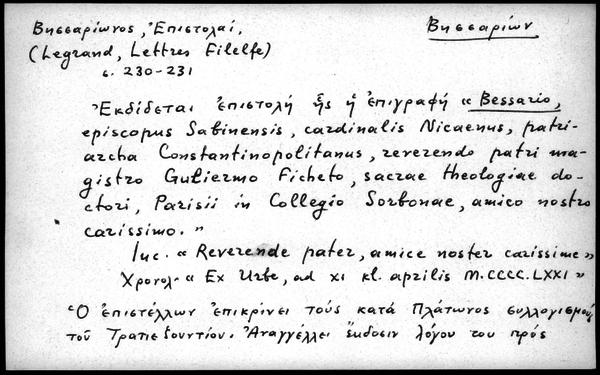 Βησσαρίωνος, Ἐπιστολαί,
Βησσαρίων
(Legrand, Lettres Filelfe)
σ. 230-231
Ἐκδίδεται ἐπιστολή ἧς ἡ ἐπιγραφή « Bessario,
episcopus Sabinensis, cardinalis Nicaenus, patri-
archa Constantinopolitanus, reverendo patri ma-
gistro Guliermo Ficheto, sacrae theologiae do-
ctori, Parisii in Collegio Sorbonae, amico nostro
carissimo. »
Inc. « Reverende pater, amice noster carissime »
Χρονολ. « Ex Urbe, ad XI kl. aprilis M.CCCC.LXXI »
Ὁ ἐπιστέλλων ἐπικρίνει τούς κατά Πλάτωνος συλλογισμούς
τοῦ Τραπεζουντίου. Ἀναγγέλλει ἔκδοσιν λόγου του πρός